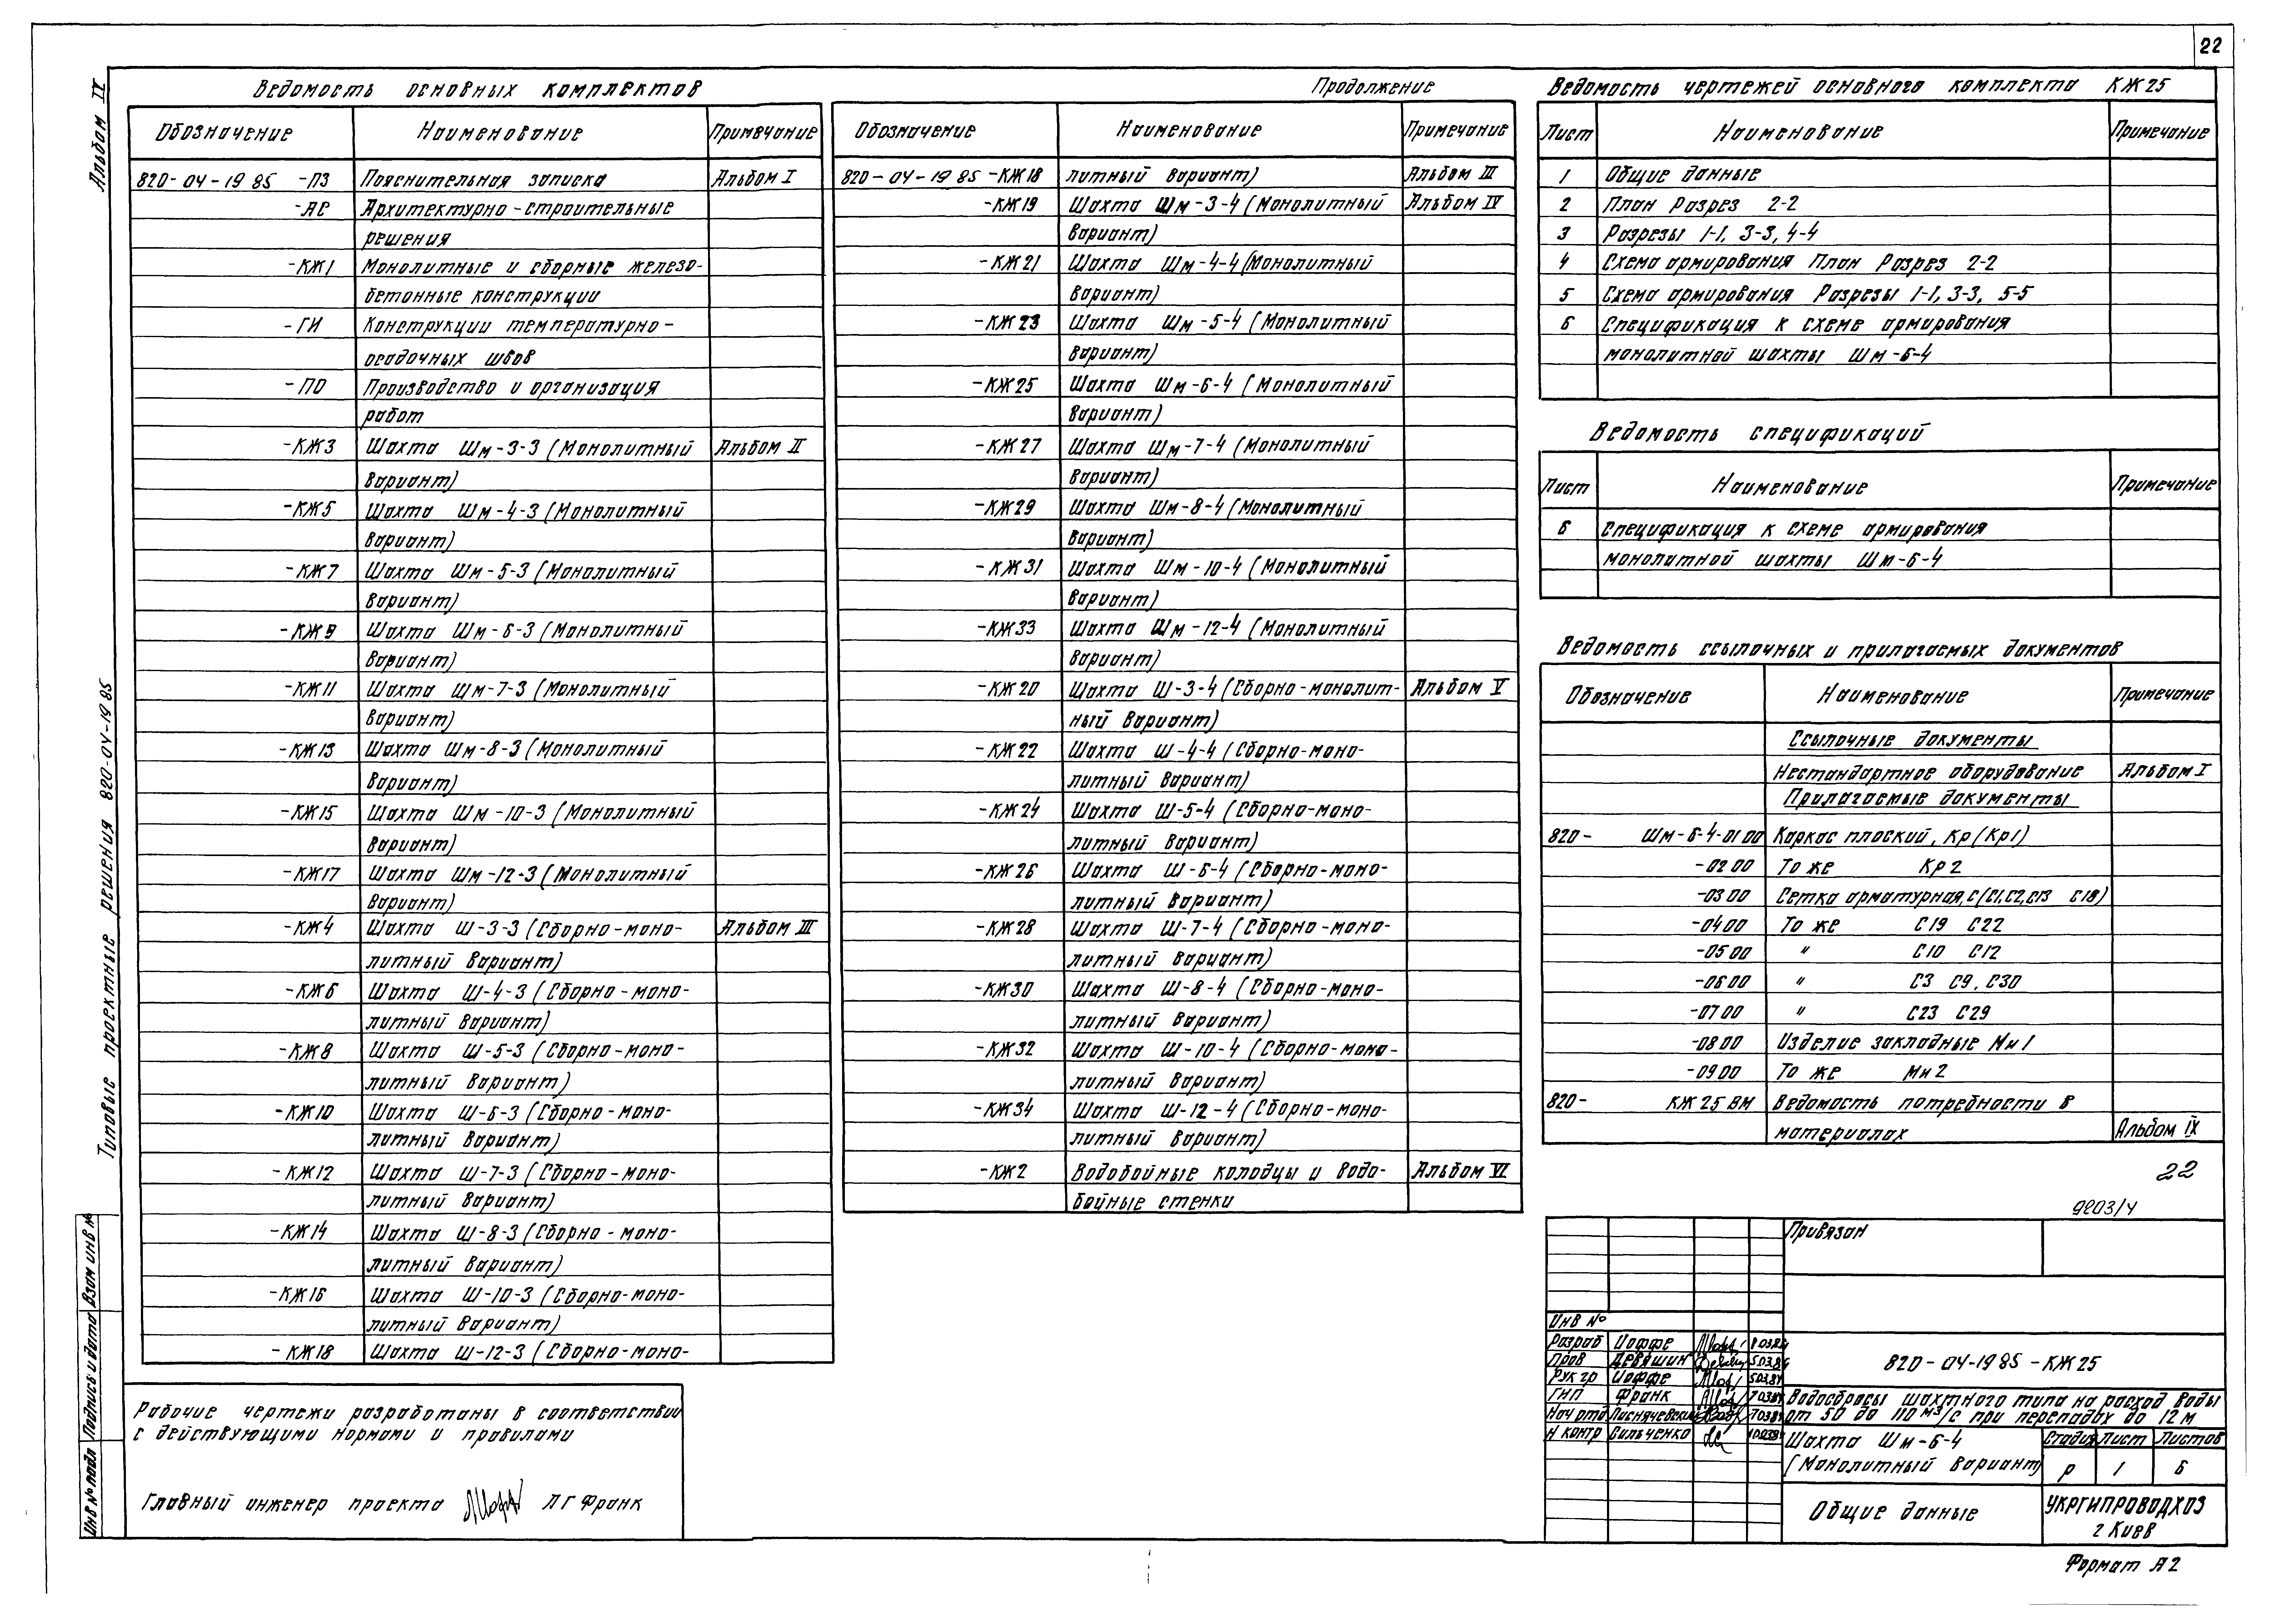 22
Альбом IV
Типовые проектные решения 820-04-19 85
Взам инв №
Подпись и дата
Инв № подл
Ведомость основных комплектов
Обозначение Наименование Примечание
820-04-19 85 -ПЗ Пояснительная записка Альбом I
-АС Архитектурно-строительные
решения
-КЖ1 Монолитные и сборные железо-
бетонные конструкции
-ГИ Конструкции температурно-
осадочных швов
-ПО Производство и организация
работ
-КЖ3 Шахта Шм-3-3 (Монолитный Альбом II
вариант)
-КЖ5 Шахта Шм-4-3 (Монолитный
вариант)
-КЖ7 Шахта Шм-5-3 (Монолитный
вариант)
-КЖ9 Шахта Шм-6-3 (Монолитный
вариант)
-КЖ11 Шахта Шм-7-3 (Монолитный
вариант)
-КЖ13 Шахта Шм-8-3 (Монолитный
вариант)
-КЖ15 Шахта Шм-10-3 (Монолитный
вариант)
-КЖ17 Шахта Шм-12-3 (Монолитный
вариант)
-КЖ4 Шахта Ш-3-3 (Сборно-моно- Альбом III
литный вариант)
-КЖ6 Шахта Ш-4-3 (Сборно-моно-
литный вариант)
-КЖ8 Шахта Ш-5-3 (Сборно-моно-
литный вариант)
-КЖ10 Шахта Ш-6-3 (Сборно-моно-
литный вариант)
-КЖ12 Шахта Ш-7-3 (Сборно-моно-
литный вариант)
-КЖ14 Шахта Ш-8-3 (Сборно-моно-
литный вариант)
-КЖ16 Шахта Ш-10-3 (Сборно-моно-
литный вариант)
-КЖ18 Шахта Ш-12-3 (Сборно-моно-
Рабочие чертежи разработаны в соответствии
с действующими нормами и правилами
Главный инженер проекта Л Г Франк
Продолжение
Обозначение Наименование Примечание
820-04-19 85 -КЖ18 литный вариант) Альбом III
-КЖ19 Шахта Шм-3-4 (Монолитный Альбом IV
вариант)
-КЖ21 Шахта Шм-4-4 (Монолитный
вариант)
-КЖ23 Шахта Шм-5-4 (Монолитный
вариант)
-КЖ25 Шахта Шм-6-4 (Монолитный
вариант)
-КЖ27 Шахта Шм-7-4 (Монолитный
вариант)
-КЖ29 Шахта Шм-8-4 (Монолитный
вариант)
-КЖ31 Шахта Шм-10-4 (Монолитный
вариант)
-КЖ33 Шахта Шм-12-4 (Монолитный
вариант)
-КЖ20 Шахта Ш-3-4 (Сборно-монолит- Альбом V
ный вариант)
-КЖ22 Шахта Ш-4-4 (Сборно-моно-
литный вариант)
-КЖ24 Шахта Ш-5-4 (Сборно-моно-
литный вариант)
-КЖ26 Шахта Ш-6-4 (Сборно-моно-
литный вариант)
-КЖ28 Шахта Ш-7-4 (Сборно-моно-
литный вариант)
-КЖ30 Шахта Ш-8-4 (Сборно-моно-
литный вариант)
-КЖ32 Шахта Ш-10-4 (Сборно-моно-
литный вариант)
-КЖ34 Шахта Ш-12-4 (Сборно-моно-
литный вариант)
-КЖ2 Водобойные колодцы и водо- Альбом VI
бойные стенки
Ведомость чертежей основного комплекта КЖ25
Лист Наименование Примечание
1 Общие данные
2 План Разрез 2-2
3 Разрезы 1-1, 3-3, 4-4
4 Схема армирования План Разрез 2-2
5 Схема армирования Разрезы 1-1, 3-3, 5-5
6 Спецификация к схеме армирования
монолитной шахты Шм-6-4
Ведомость спецификаций
Лист Наименование Примечание
6 Спецификация к схеме армирования
монолитной шахты Шм-6-4
Ведомость ссылочных и прилагаемых документов
Обозначение Наименование Примечание
Ссылочные документы
Нестандартное оборудование Альбом I
Прилагаемые документы
820- Шм-6-4-01 00 Каркас плоский, Кр (Кр1)
-02 00 То же Кр 2
-03 00 Сетка арматурная, С (С1, С2, С13 С18)
-04 00 То же С19 С22
-05 00 " С10 С12
-06 00 " С3 С9, С30
-07 00 " С23 С29
-08 00 Изделие закладные Мн 1
-09 00 То же Мн 2
820- КЖ 25 ВМ Ведомость потребности в
материалах Альбом IX
22
9203/4
Привязан
Инв №
Разраб Иоффе
Пров Девяшин
Рук гр Иоффе
ГИП Франк
Нач отд
Н контр Сильченко
820-04-19 85 -КЖ25
Водосбросы шахтного типа на расход воды
от 50 до 110 м³/с при перепадах до 12 м
Шахта Шм-6-4
(Монолитный вариант)
Стадия Лист Листов
Р 1 6
Общие данные
УКРГИПРОВОДХОЗ
г Киев
Формат А2